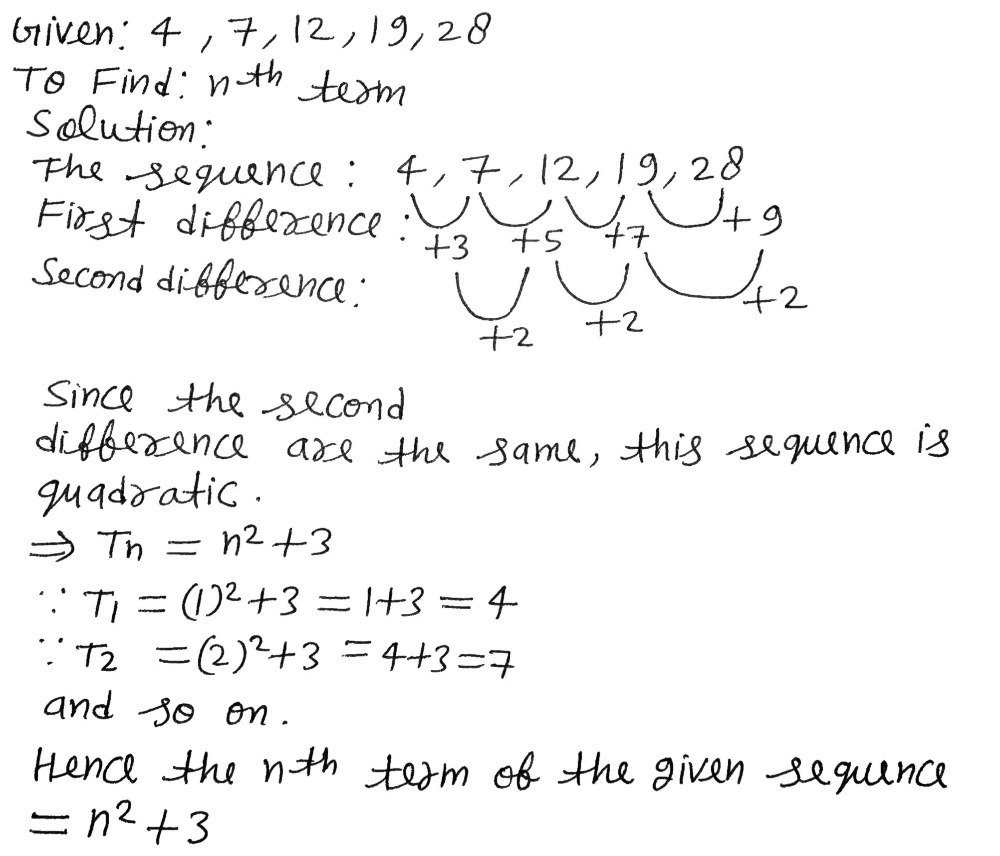 Given: 4, 7, 12, 19, 28
To Find: nth term
Solution:
The sequence: 4, 7, 12, 19, 28
First difference: +3 +5 +7 +9
Second difference: +2 +2 +2
Since the second
difference are the same, this sequence is
quadratic.
⇒ Tn = n²+3
∵ T₁ = (1)²+3 = 1+3 = 4
∵ T₂ = (2)²+3 = 4+3 = 7
and so on.
Hence the nth term of the given sequence
= n²+3